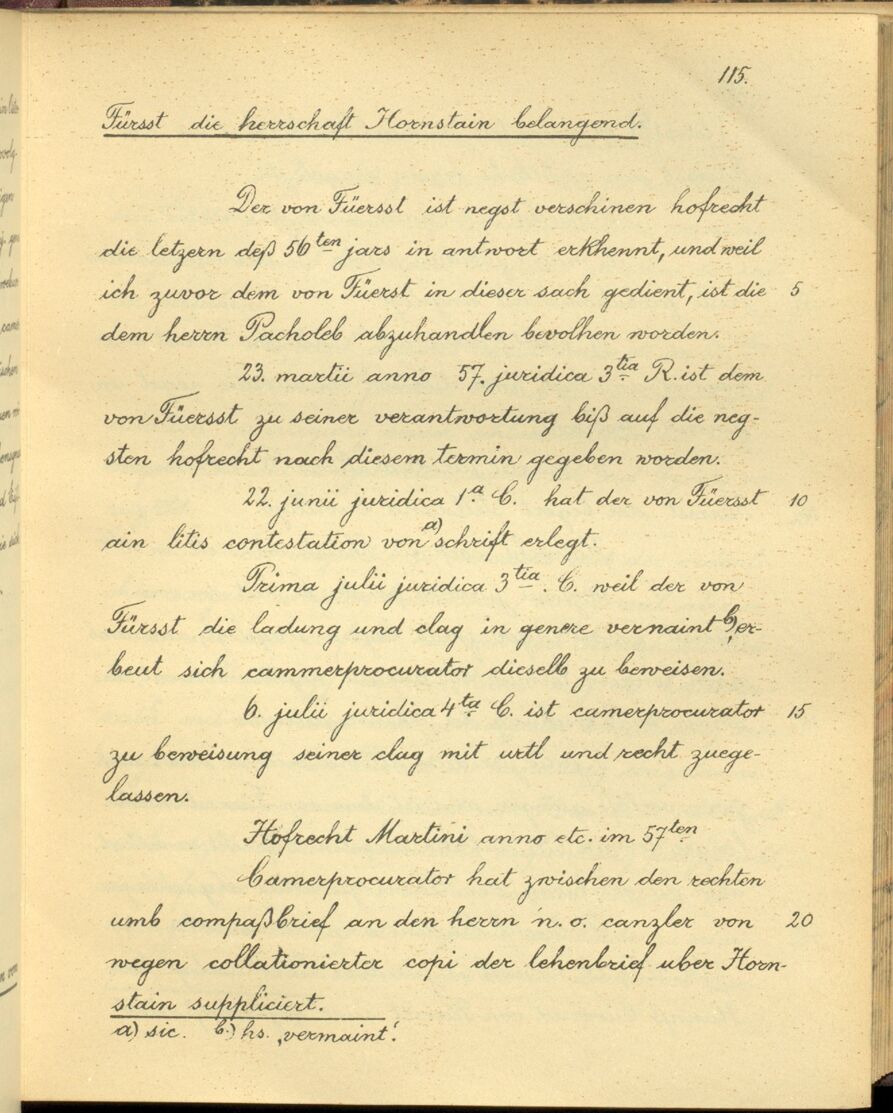 115.
Fürsst die herrschaft Hornstain belangend.
Der von Füersst ist negst verschinen hofrecht
die letzern deß 56ten jars in antwort erkhennt, und weil
ich zuvor dem von Füerst in dieser sach gedient, ist die 5
dem herrn Pacholeb abzuhandlen bevolhen worden.
23. martii anno 57. juridica 3tia R. ist dem
von Füersst zu seiner verantwortung biß auf die neg-
sten hofrecht nach diesem termin gegeben worden.
22. junii juridica 1.a C. hat der von Füersst 10
ain litis contestation von a) schrift erlegt.
Prima julii juridica 3tia. C. weil der von
Fürsst die ladung und clag in genere vernaint b), er-
beut sich cammerprocurator dieselb zu beweisen.
6. julii juridica 4ta C. ist camerprocurator 15
zu beweisung seiner clag mit urtl und recht zuege-
lassen.
Hofrecht Martini anno etc. im 57ten
Camerprocurator hat zwischen den rechten
umb compaßbrief an den herrn n. o. canzler von 20
wegen collationierter copi der lehenbrief uber Horn-
stain suppliciert.
a) sic. b.) hs. ‚vermaint‘.